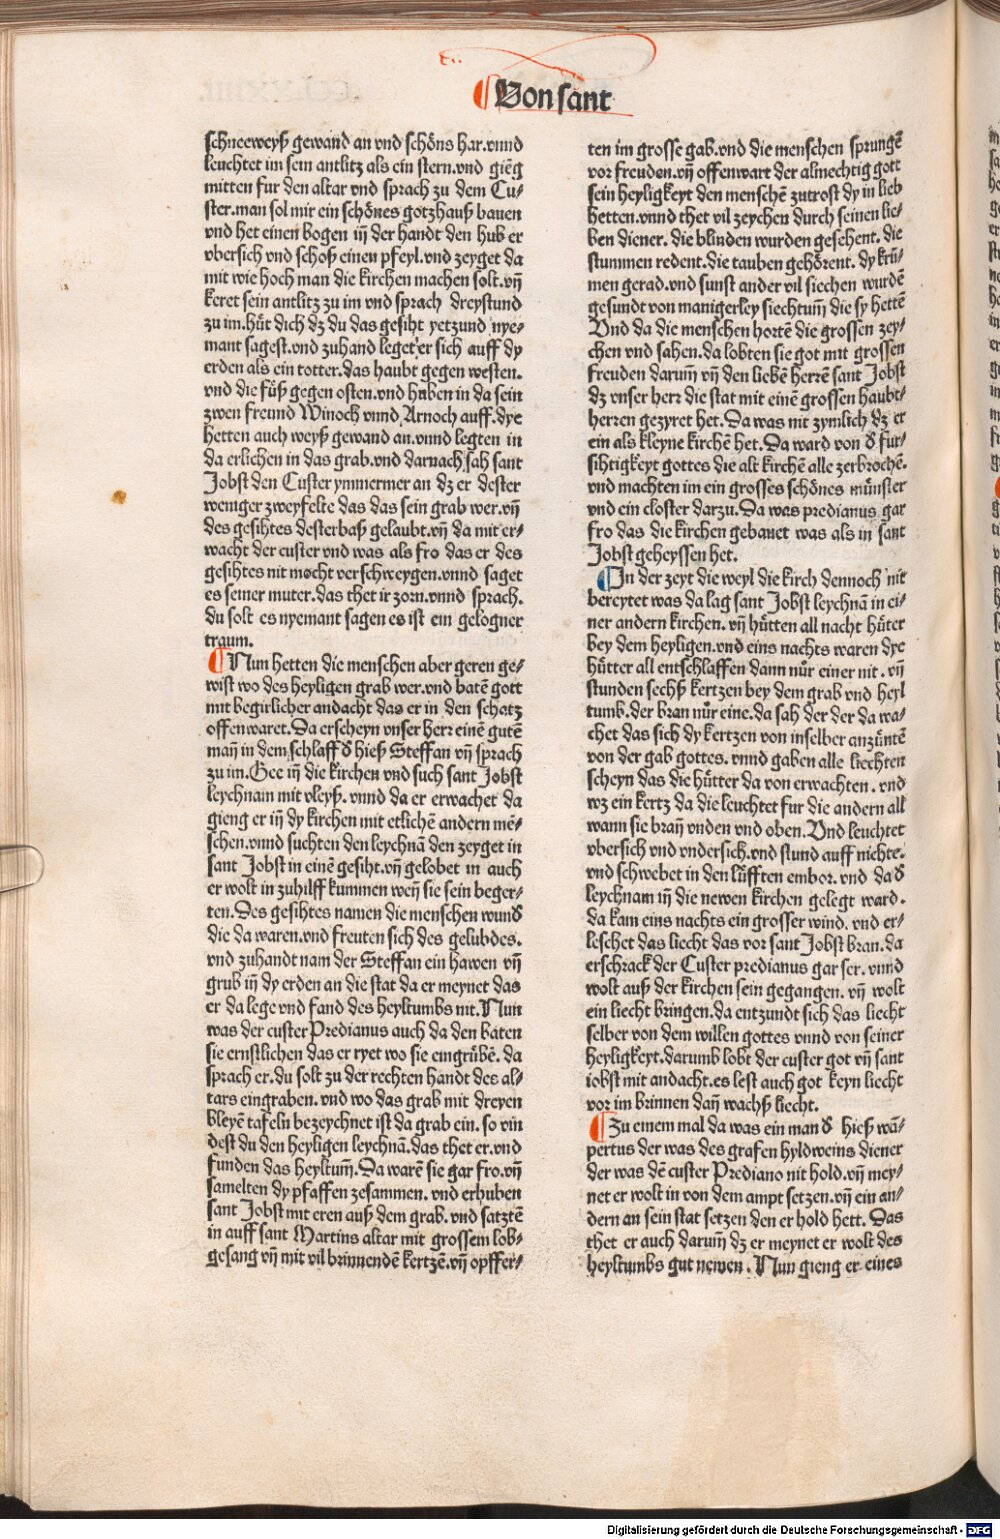 Von sant
schneeweyß gewand an vnd schöns har.vnnd
leuchtet im sein antlitz als ein stern.vnd gieng
mitten fur den altar vnd sprach zu dem Cu⸗
ster.man sol mir ein schönes gotzhauß bauen
vnd het einen bogen iñ der handt den hub er
vbersich vnd schoß einen pfeyl.vnd zeyget da
mit wie hoch man die kirchen machen solt.vñ
keret sein antlitz zu im vnd sprach dreystund
zu im.hüt dich dz du das gesiht yetzund nye⸗
mant sagest.vnd zuhand leget er sich auff dy
erden als ein totter.das haubt gegen westen.
vnd die füß gegen osten.vnd huben in da sein
zwen freund Winoch vnnd Arnoch auff.dye
hetten auch weyß gewand an.vnnd legten in
da erlichen in das grab.vnd darnach sah sant
Jobst den Custer ymmermer an dz er dester
weniger zweyfelte das das sein grab wer.vñ
des gesihtes desterbaß gelaubt.vñ da mit er⸗
wacht der custer vnd was als fro das er des
gesihtes nit mocht verschweygen.vnnd saget
es seiner muter.das thet ir zorn.vnnd sprach.
du solt es nyemant sagen es ist ein gelogner
traum.
Nun hetten die menschen aber geren ge⸗
wist wo des heyligen grab wer.vnd batē gott
mit begirlicher andacht das er in den schatz
offenwaret.Da erscheyn vnser herr einē gutē
mañ in dem schlaff d̕ hieß Steffan vñ sprach
zu im.Gee iñ die kirchen vnd such sant Jobst
leychnam mit vleyß. vnnd da er erwachet da
gieng er iñ dy kirchen mit etlichē andern mē⸗
schen.vnnd suchten den leychnā den zeyget in
sant Jobst in einē gesiht.vñ gelobet in auch
er wolt in zuhilff kummen weñ sie sein beger⸗
ten.Des gesihtes namen die menschen wund̕
die da waren.vnd freuten sich des gelubdes.
vnd zuhandt nam der Steffan ein hawen vñ
grub iñ dy erden an die stat da er meynet das
er da lege vnd fand des heyltumbs nit.Nun
was der custer Predianus auch da den baten
sie ernstlichen das er ryet wo sie eingrübē. da
sprach er.du solt zu der rechten handt des al⸗
tars eingraben.vnd wo das grab mit dreyen
bleyē tafeln bezeychnet ist da grab ein. so vin
dest du den heyligen leychnā.das thet er.vnd
funden das heyltum̄.Da warē sie gar fro.vñ
samelten dy pfaffen zesammen. vnd erhuben
sant Jobst mit eren auß dem grab.vnd satztē
in auff sant Martins altar mit grossem lob⸗
gesang vñ mit vil brinnendē kertzē.vñ opffer⸗
ten im grosse gab.vnd die menschen sprungē
vor freuden.vñ offenwart der almechtig gott
sein heyligkeyt den menschē zutrost dy in lieb
hetten.vnnd thet vil zeychen durch seinen lie⸗
ben diener. die blinden wurden gesehent. die
stummen redent.die tauben gehörent. dy krū⸗
men gerad.vnd sunst ander vil siechen wurdē
gesundt von manigerley siechtum̄ die sy hettē
Vnd da die menschen hortē die grossen zey⸗
chen vnd sahen.da lobten sie got mit grossen
freuden darum̄ vñ den liebē herrē sant Jobst
dz vnser herr die stat mit einē grossen haubt⸗
herren gezyret het.Da was nit zymlich dz er
ein als kleyne kirchē het.Da ward von d̕ fur⸗
sihtigkeyt gottes die alt kirchē alle zerbrochē.
vnd machten im ein grosses schönes münster
vnd ein closter darzu.Da was predianus gar
fro das die kirchen gebauet was als in sant
Jobst geheyssen het.
In der zeyt die weyl die kirch dennoch nit
bereytet was da lag sant Jobst leychnā in ei⸗
ner andern kirchen. vñ hütten all nacht hüter
bey dem heyligen.vnd eins nachts waren dye
hütter all entschlaffen dann nür einer nit. vñ
stunden sechß kertzen bey dem grab vnd heyl
tumb.der bran nür eine.da sah der der da wa⸗
chet das sich dy kertzen von inselber anzüntē
von der gab gottes. vnnd gaben alle liechten
scheyn das die hütter da von erwachten. vnd
wz ein kertz da die leuchtet fur die andern all
wann sie brañ vnden vnd oben.Vnd leuchtet
vbersich vnd vndersich.vnd stund auff nichte.
vnd schwebet in den lüfften embor. vnd da d̕
leychnam iñ die newen kirchen gelegt ward.
da kam eins nachts ein grosser wind. vnd er⸗
leschet das liecht das vor sant Jobst bran.da
erschrack der Custer predianus gar ser. vnnd
wolt auß der kirchen sein gegangen. vñ wolt
ein liecht bringen.da entzundt sich das liecht
selber von dem willen gottes vnnd von seiner
heyligkeyt.darumb lobt der custer got vñ sant
iobst mit andacht.es lest auch got keyn liecht
vor im brinnen dañ wachß liecht.
Zu einem mal da was ein man d̕ hieß wā⸗
pertus der was des grafen hyldweins diener
der was dē custer Prediano nit hold.vñ mey⸗
net er wolt in von dem ampt setzen.vñ ein an⸗
dern an sein stat setzen den er hold hett. Das
thet er auch darum̄ dz er meynet er wolt des
heyltumbs gut nemen. Nun gieng er eines
Digitalisierung gefördert durch die Deutsche Forschungsgemeinschaft - DFG